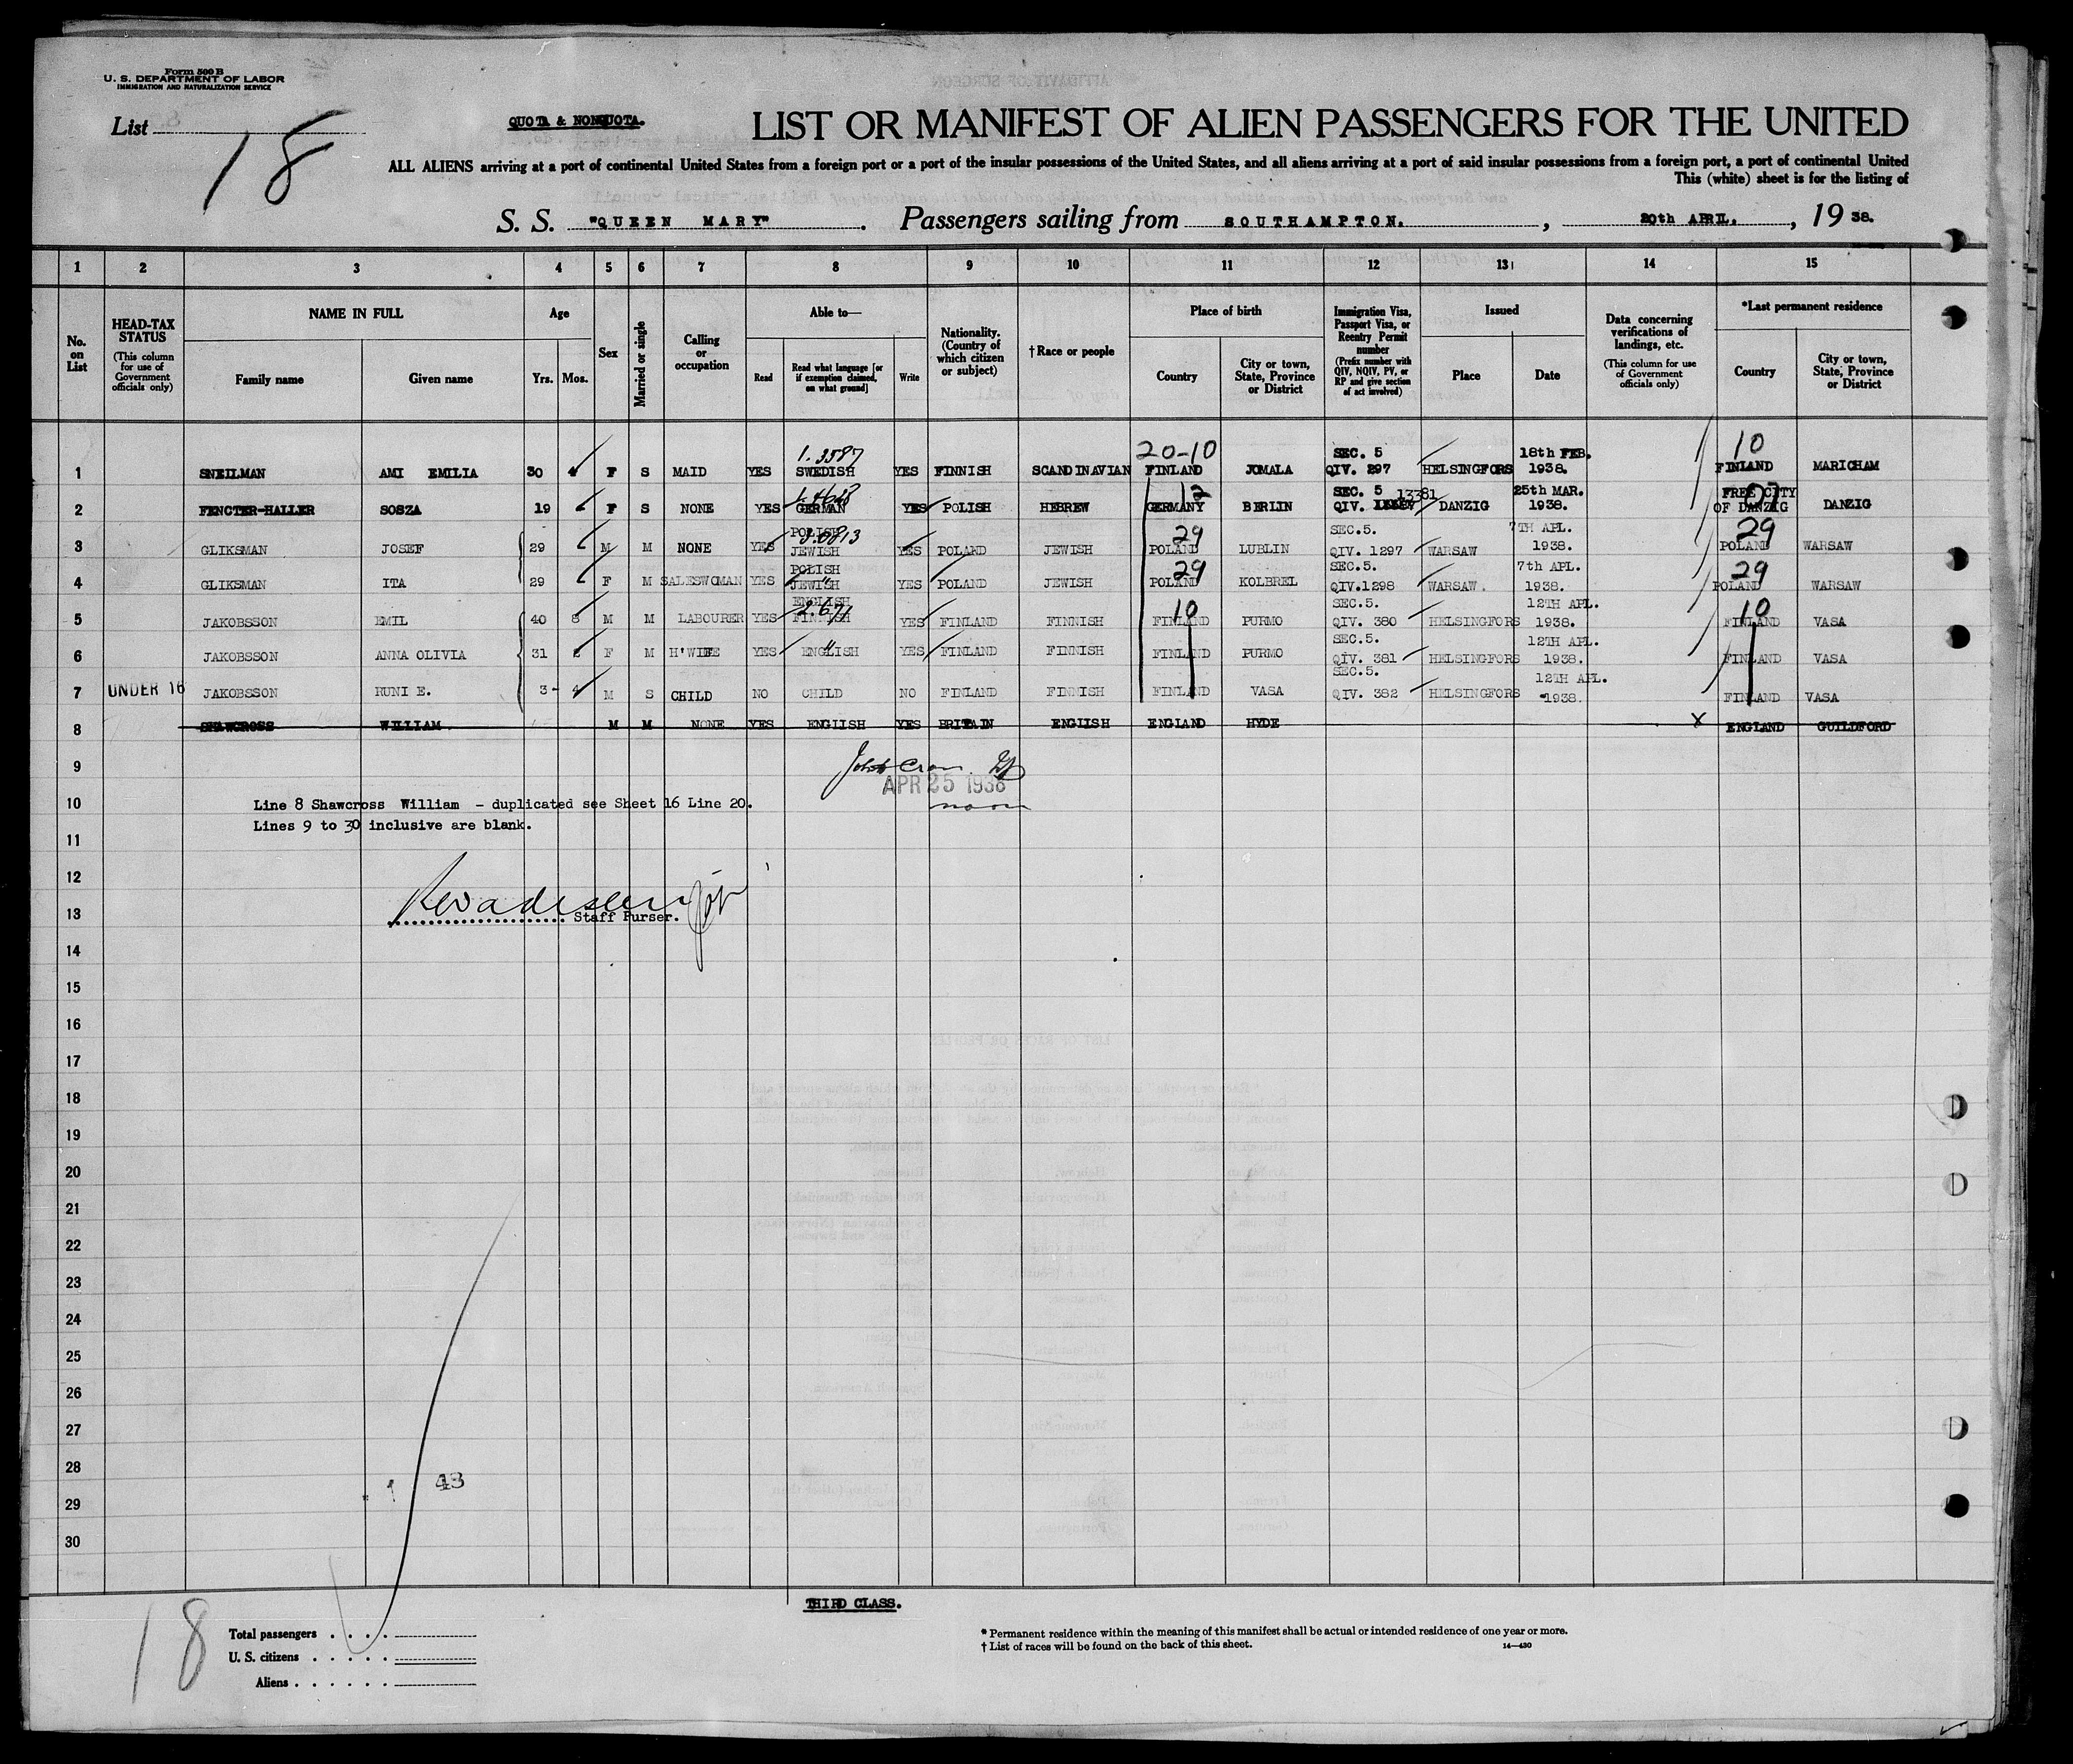 Form 500 B
U. S. DEPARTMENT OF LABOR
IMMIGRATION AND NATURALIZATION SERVICE
List 18
QUOTA & NONQUOTA.
LIST OR MANIFEST OF ALIEN PASSENGERS FOR THE UNITED
ALL ALIENS arriving at a port of continental United States from a foreign port or a port of the insular possessions of the United States, and all aliens arriving at a port of said insular possessions from a foreign port, a port of continental United
This (white) sheet is for the listing of
S. S. "QUEEN MARY". Passengers sailing from SOUTHAMPTON. , 20th APRIL. , 19 38.
1 2 3 4 5 6 7 8 9 10 11 12 13 14 15
No. on List
HEAD-TAX STATUS (This column for use of Government officials only)
NAME IN FULL
Family name Given name
Age
Yrs. Mos.
Sex
Married or single
Calling or occupation
Able to—
Read
Read what language [or if exemption claimed, on what ground]
Write
Nationality. (Country of which citizen or subject)
†Race or people
Place of birth
Country
City or town, State, Province or District
Immigration Visa, Passport Visa, or Reentry Permit number (Prefix number with QIV, NQIV, PV, or RP and give section of act involved)
Issued
Place Date
Data concerning verifications of landings, etc. (This column for use of Government officials only)
*Last permanent residence
Country
City or town, State, Province or District
1.3587 20-10 SEC. 5 18th FEB. 10
1 SNEILMAN AMI EMILIA 30 4 F S MAID YES SWEDISH YES FINNISH SCANDINAVIAN FINLAND JOMALA QIV. 297 HELSINGFORS 1938. FINLAND MARICHAM
12 SEC. 5 13381 25th MAR. FREE CITY
2 FENCTER-HALLER SOSZA 19 F S NONE YES GERMAN YES POLISH HEBREW GERMANY BERLIN QIV. DANZIG 1938. OF DANZIG DANZIG
POLISH 29 SEC.5. 7TH APL. 29
3 GLIKSMAN JOSEF 29 M M NONE YES JEWISH YES POLAND JEWISH POLAND LUBLIN QIV. 1297 WARSAW 1938. POLAND WARSAW
POLISH 29 SEC.5. 7th APL. 29
4 GLIKSMAN ITA 29 F M SALESWOMAN YES JEWISH YES POLAND JEWISH POLAND KOLBREL QIV.1298 WARSAW. 1938. POLAND WARSAW
ENGLISH 2.671 10 SEC.5. 12TH APL. 10
5 JAKOBSSON EMIL 40 8 M M LABOURER YES FINNISH YES FINLAND FINNISH FINLAND PURMO QIV. 380 HELSINGFORS 1938. FINLAND VASA
" SEC.5. 12TH APL.
6 JAKOBSSON ANNA OLIVIA 31 F M H'WIFE YES ENGLISH YES FINLAND FINNISH FINLAND PURMO QIV. 381 HELSINGFORS 1938. FINLAND VASA
SEC.5. 12TH APL.
7 UNDER 16 JAKOBSSON RUNI E. 3 - 4 M S CHILD NO CHILD NO FINLAND FINNISH FINLAND VASA QIV. 382 HELSINGFORS 1938. FINLAND VASA
8 SHAWCROSS WILLIAM M M NONE YES ENGLISH YES BRITAIN ENGLISH ENGLAND HYDE X ENGLAND GUILDFORD
9
APR 25 1938
10 Line 8 Shawcross William - duplicated see Sheet 16 Line 20. noon
Lines 9 to 30 inclusive are blank.
11
12
13 Staff Purser.
14
15
16
17
18
19
20
21
22
23
24
25
26
27
28
43
29
30
THIRD CLASS.
18
Total passengers
U. S. citizens
Aliens
* Permanent residence within the meaning of this manifest shall be actual or intended residence of one year or more.
† List of races will be found on the back of this sheet.
14—430